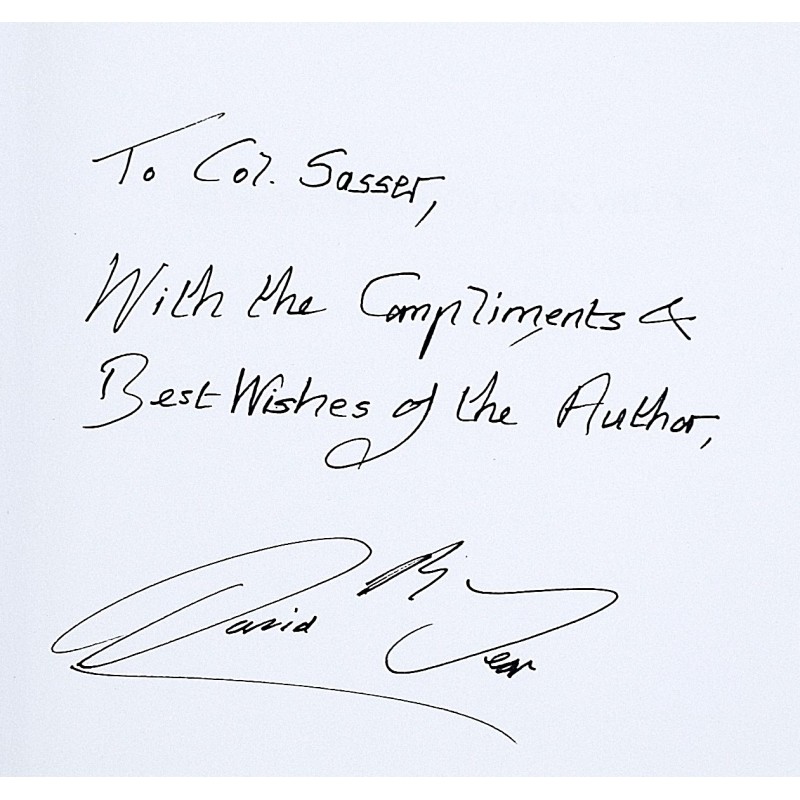 To Col. Sasser,
With the Compliments &
Best Wishes of the Author,
David